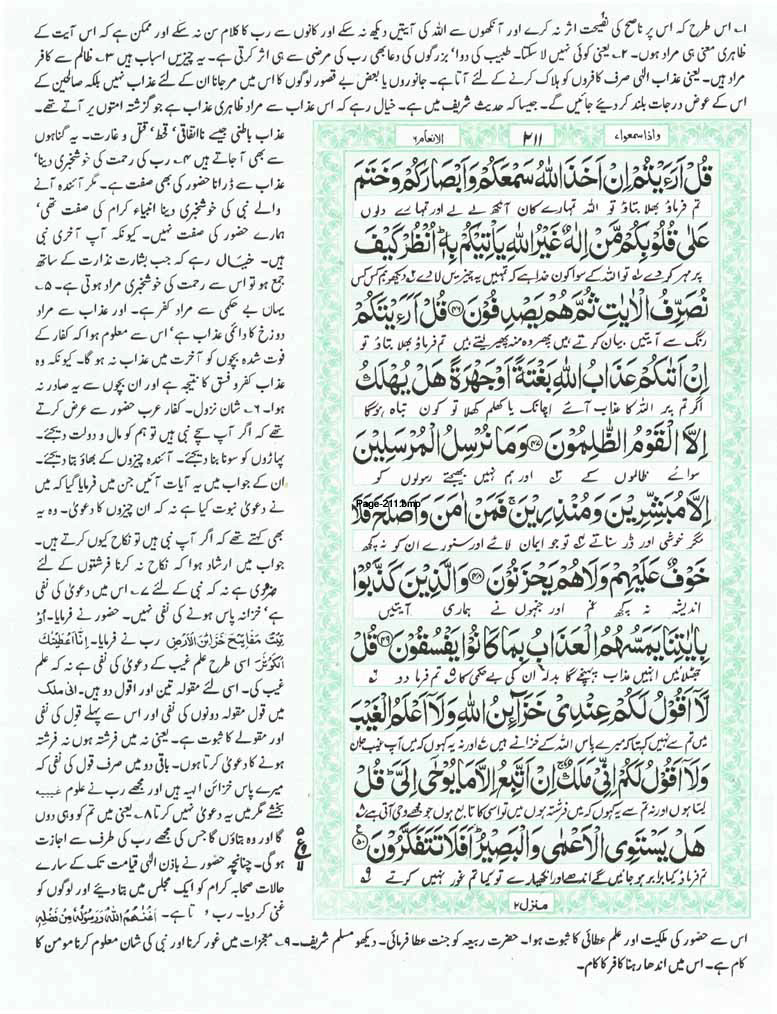 ۱؎ اس طرح کہ اس پر ناصح کی نصیحت اثر نہ کرے اور آنکھوں سے اللہ کی آیتیں دیکھ نہ سکے اور کانوں سے رب کا کلام سن نہ سکے اور ممکن ہے کہ اس آیت کے
ظاہری معنی ہی مراد ہوں۔ ۲؎ یعنی کوئی نہیں لا سکتا۔ طبیب کی دوا' بزرگوں کی دعا بھی رب کی مرضی سے ہی اثر کرتی ہے۔ یہ چیزیں اسباب ہیں ۳؎ ظالم سے کافر
مراد ہیں۔ یعنی عذاب الٰہی صرف کافروں کو ہلاک کرنے کے لئے آتا ہے۔ جانوروں یا بعض بے قصور لوگوں کا اس میں مر جانا ان کے لئے عذاب نہیں بلکہ صالحین کے
اس کے عوض درجات بلند کر دیئے جائیں گے۔ جیسا کہ حدیث شریف میں ہے۔ خیال رہے کہ اس عذاب سے مراد ظاہری عذاب ہے جو گزشتہ امتوں پر آتے تھے۔
عذاب باطنی جیسے نااتفاقی' قحط' قتل و غارت۔ یہ گناہوں
سے بھی آ جاتے ہیں ۴؎ رب کی رحمت کی خوشخبری دینا'
عذاب سے ڈرانا حضور کی بھی صفت ہے۔ مگر آئندہ آنے
والے نبی کی خوشخبری دینا انبیاء کرام کی صفت تھی'
ہمارے حضور کی صفت نہیں۔ کیونکہ آپ آخری نبی
ہیں۔ خیال رہے کہ جب بشارت نذارت کے ساتھ
جمع ہو تو اس سے رحمت کی خوشخبری مراد ہوتی ہے۔ ۵؎
یہاں بے حکمی سے مراد کفر ہے۔ اور عذاب سے مراد
دوزخ کا دائمی عذاب ہے' اس سے معلوم ہوا کہ کفار کے
فوت شدہ بچوں کو آخرت میں عذاب نہ ہو گا۔ کیونکہ وہ
عذاب کفر و فسق کا نتیجہ ہے اور ان بچوں سے یہ صادر نہ
ہوا۔ ۶؎ شان نزول۔ کفار عرب حضور سے عرض کرتے
تھے کہ اگر آپ سچے نبی ہیں تو ہم کو مال و دولت دیجئے۔
پہاڑوں کو سونا بنا دیجئے۔ آئندہ چیزوں کے بھاؤ بتا دیجئے۔
ان کے جواب میں یہ آیات آئیں جن میں فرمایا گیا کہ میں
نے دعویٰ نبوت کیا ہے نہ کہ ان چیزوں کا دعویٰ۔ وہ یہ
بھی کہتے تھے کہ اگر آپ نبی ہیں تو نکاح کیوں کرتے ہیں۔
جواب میں ارشاد ہوا کہ نکاح نہ کرنا فرشتوں کے لئے
ضروری ہے نہ کہ نبی کے لئے ۷؎ اس میں دعویٰ کی نفی
ہے' خزانہ پاس ہونے کی نفی نہیں۔ حضور نے فرمایا۔ اُوْ
تِیْتُ مَفَاتِیْحَ خَزَائِنِ الْاَرْضِ رب نے فرمایا۔ اِنَّا اَعْطَیْنٰکَ
الْکَوْثَرَ اسی طرح علم غیب کے دعویٰ کی نفی ہے نہ کہ علم
غیب کی۔ اسی لئے مقولہ تین اور اقول دو ہیں۔ انی ملک
میں قول مقولہ دونوں کی نفی اور اس سے پہلے قول کی نفی
اور مقولے کا ثبوت ہے۔ یعنی نہ میں فرشتہ ہوں نہ فرشتہ
ہونے کا دعویٰ کرتا ہوں۔ باقی دو میں صرف قول کی نفی کہ
میرے پاس خزائن الہیہ ہیں اور مجھے رب نے علوم غیبیہ
بخشے مگر میں یہ دعویٰ نہیں کرتا ۸؎ یعنی میں تم کو وہی دوں
گا اور وہ بتاؤں گا جس کی مجھے رب کی طرف سے اجازت
ہو گی۔ چنانچہ حضور نے باذن الٰہی قیامت تک کے سارے
حالات صحابہ کرام کو ایک مجلس میں بتا دیئے اور لوگوں کو
غنی کر دیا۔ رب تا ہے۔ اَغْنٰهُمُ اللّٰهُ وَرَسُوْلُهٗ مِنْ فَضْلِهٖ
واذا سمعوا ۷
۲۱۱
الانعام ۶
قُلْ اَرَءَیْتُمْ اِنْ اَخَذَ اللّٰهُ سَمْعَكُمْ وَاَبْصَارَكُمْ وَخَتَمَ
تم فرماؤ بھلا بتاؤ تو اللہ تمہارے کان آنکھ لے لے اور تمہارے دلوں
عَلٰى قُلُوْبِكُمْ مَّنْ اِلٰهٌ غَیْرُ اللّٰهِ یَاْتِیْكُمْ بِهٖ اُنْظُرْ كَیْفَ
پر مہر کر دے تو اللہ کے سوا کون خدا ہے کہ تمہیں یہ چیزیں لا دے ۲ دیکھو ہم کس کس
نُصَرِّفُ الْاٰیٰتِ ثُمَّ هُمْ یَصْدِفُوْنَ ۴۶ قُلْ اَرَءَیْتَكُمْ
رنگ سے آیتیں بیان کرتے ہیں پھر وہ منہ پھیر لیتے ہیں تم فرماؤ بھلا بتاؤ تو
اِنْ اَتٰىكُمْ عَذَابُ اللّٰهِ بَغْتَةً اَوْ جَهْرَةً هَلْ یُهْلَكُ
اگر تم پر اللہ کا عذاب آئے اچانک یا کھلم کھلا تو کون تباہ ہوگا
اِلَّا الْقَوْمُ الظّٰلِمُوْنَ ۴۷ وَمَا نُرْسِلُ الْمُرْسَلِیْنَ
سوائے ظالموں کے ۳ اور ہم نہیں بھیجتے رسولوں کو
اِلَّا مُبَشِّرِیْنَ وَمُنْذِرِیْنَ ۚ فَمَنْ اٰمَنَ وَاَصْلَحَ فَلَا
Page-211.bmp
مگر خوشی اور ڈر سناتے ۴ تو جو ایمان لائے اور سنورے ان کو نہ کچھ
خَوْفٌ عَلَیْهِمْ وَلَا هُمْ یَحْزَنُوْنَ ۴۸ وَالَّذِیْنَ كَذَّبُوْا
اندیشہ نہ کچھ غم اور جنہوں نے ہماری آیتیں
بِاٰیٰتِنَا یَمَسُّهُمُ الْعَذَابُ بِمَا كَانُوْا یَفْسُقُوْنَ ۴۹ قُلْ
جھٹلائیں انہیں عذاب پہنچے گا بدلہ ان کی بے حکمی کا ۵ تم فرما دو ۶
لَّاۤ اَقُوْلُ لَكُمْ عِنْدِیْ خَزَآئِنُ اللّٰهِ وَلَاۤ اَعْلَمُ الْغَیْبَ
میں تم سے نہیں کہتا کہ میرے پاس اللہ کے خزانے ہیں ۷ اور نہ یہ کہوں کہ میں آپ غیب جان
وَلَاۤ اَقُوْلُ لَكُمْ اِنِّیْ مَلَكٌ ۚ اِنْ اَتَّبِعُ اِلَّا مَا یُوْحٰۤى اِلَیَّ ؕ قُلْ
لیتا ہوں اور نہ تم سے یہ کہوں کہ میں فرشتہ ہوں میں تو اسی کا تابع ہوں جو مجھے وحی آتی ہے ۸
هَلْ یَسْتَوِی الْاَعْمٰى وَالْبَصِیْرُ ؕ اَفَلَا تَتَفَكَّرُوْنَ ۵۰
تم فرماؤ کیا برابر ہو جائیں گے اندھے اور انکھیارے تو کیا تم غور نہیں کرتے ۹
منزل ۲
اس سے حضور کی ملکیت اور علم عطائی کا ثبوت ہوا۔ حضرت ربیعہ کو جنت عطا فرمائی۔ دیکھو مسلم شریف۔ ۹؎ معجزات میں غور کرنا اور نبی کی شان معلوم کرنا مومن کا
کام ہے۔ اس میں اندھا رہنا کافر کا کام۔